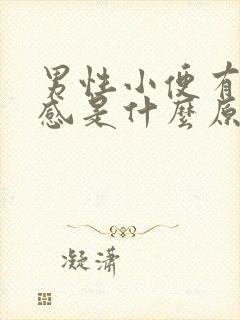 男性小便有
感是什麼原
凝瀟